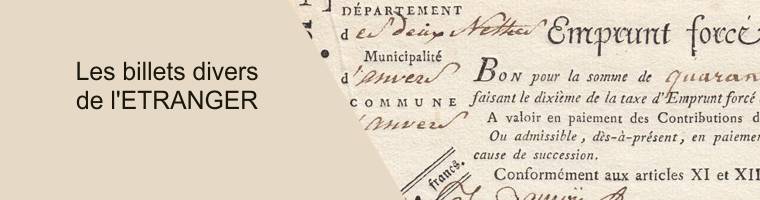 Les billets divers
de l'ETRANGER
DÉPARTEMENT
des deux Nethes
Emprunt forcé
Municipalité
d'anvers
BON pour la somme de quaran
COMMUNE
faisant le dixième de la taxe d'Emprunt forcé
d'anvers
A valoir en paiement des Contributions d
Ou admissible, dès-à-présent, en paiemen
cause de succession.
francs.
Conformément aux articles XI et XII